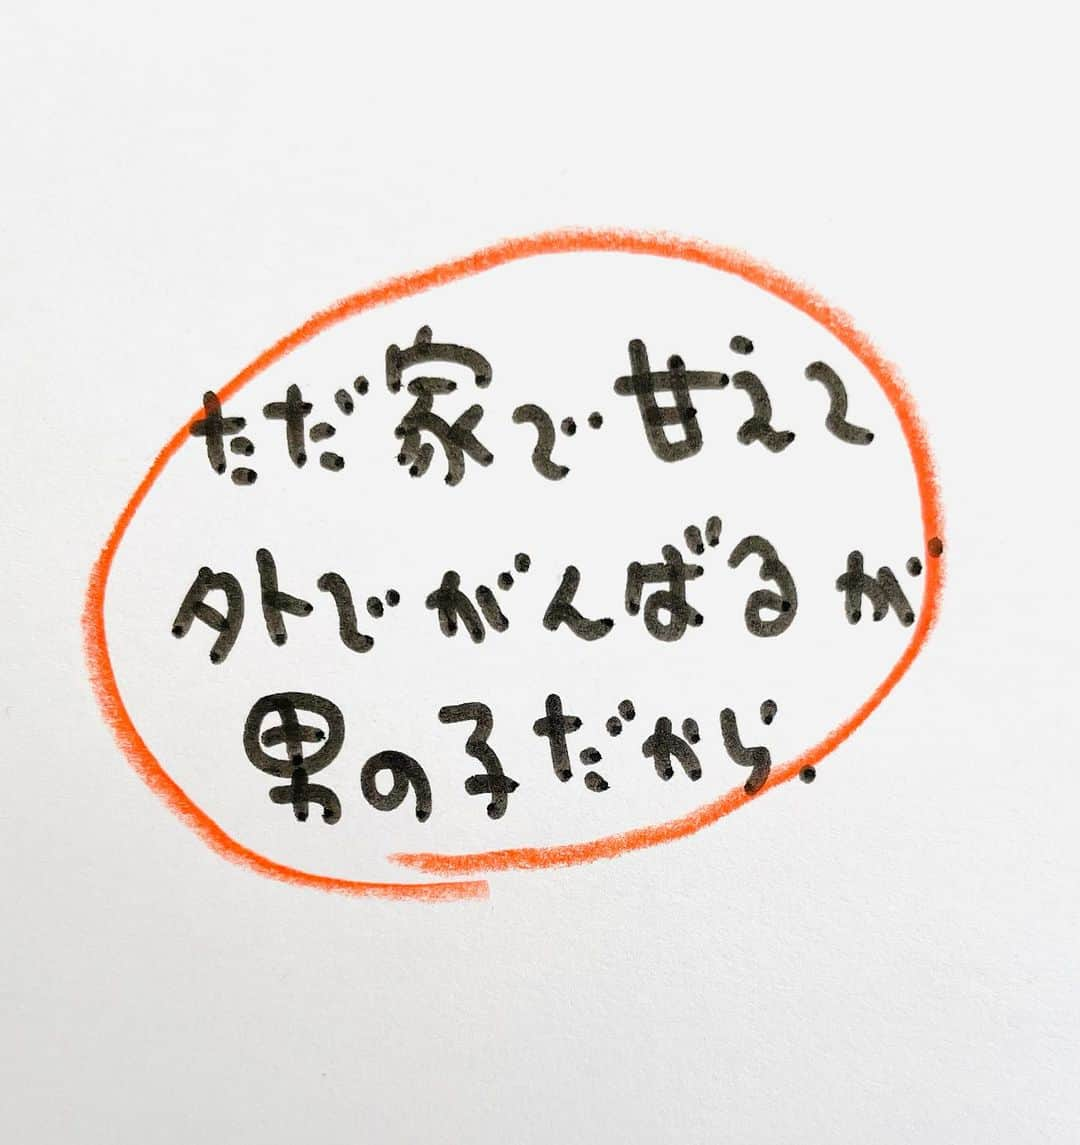 ただ家で甘えて
外でがんばるが
男の子だから.